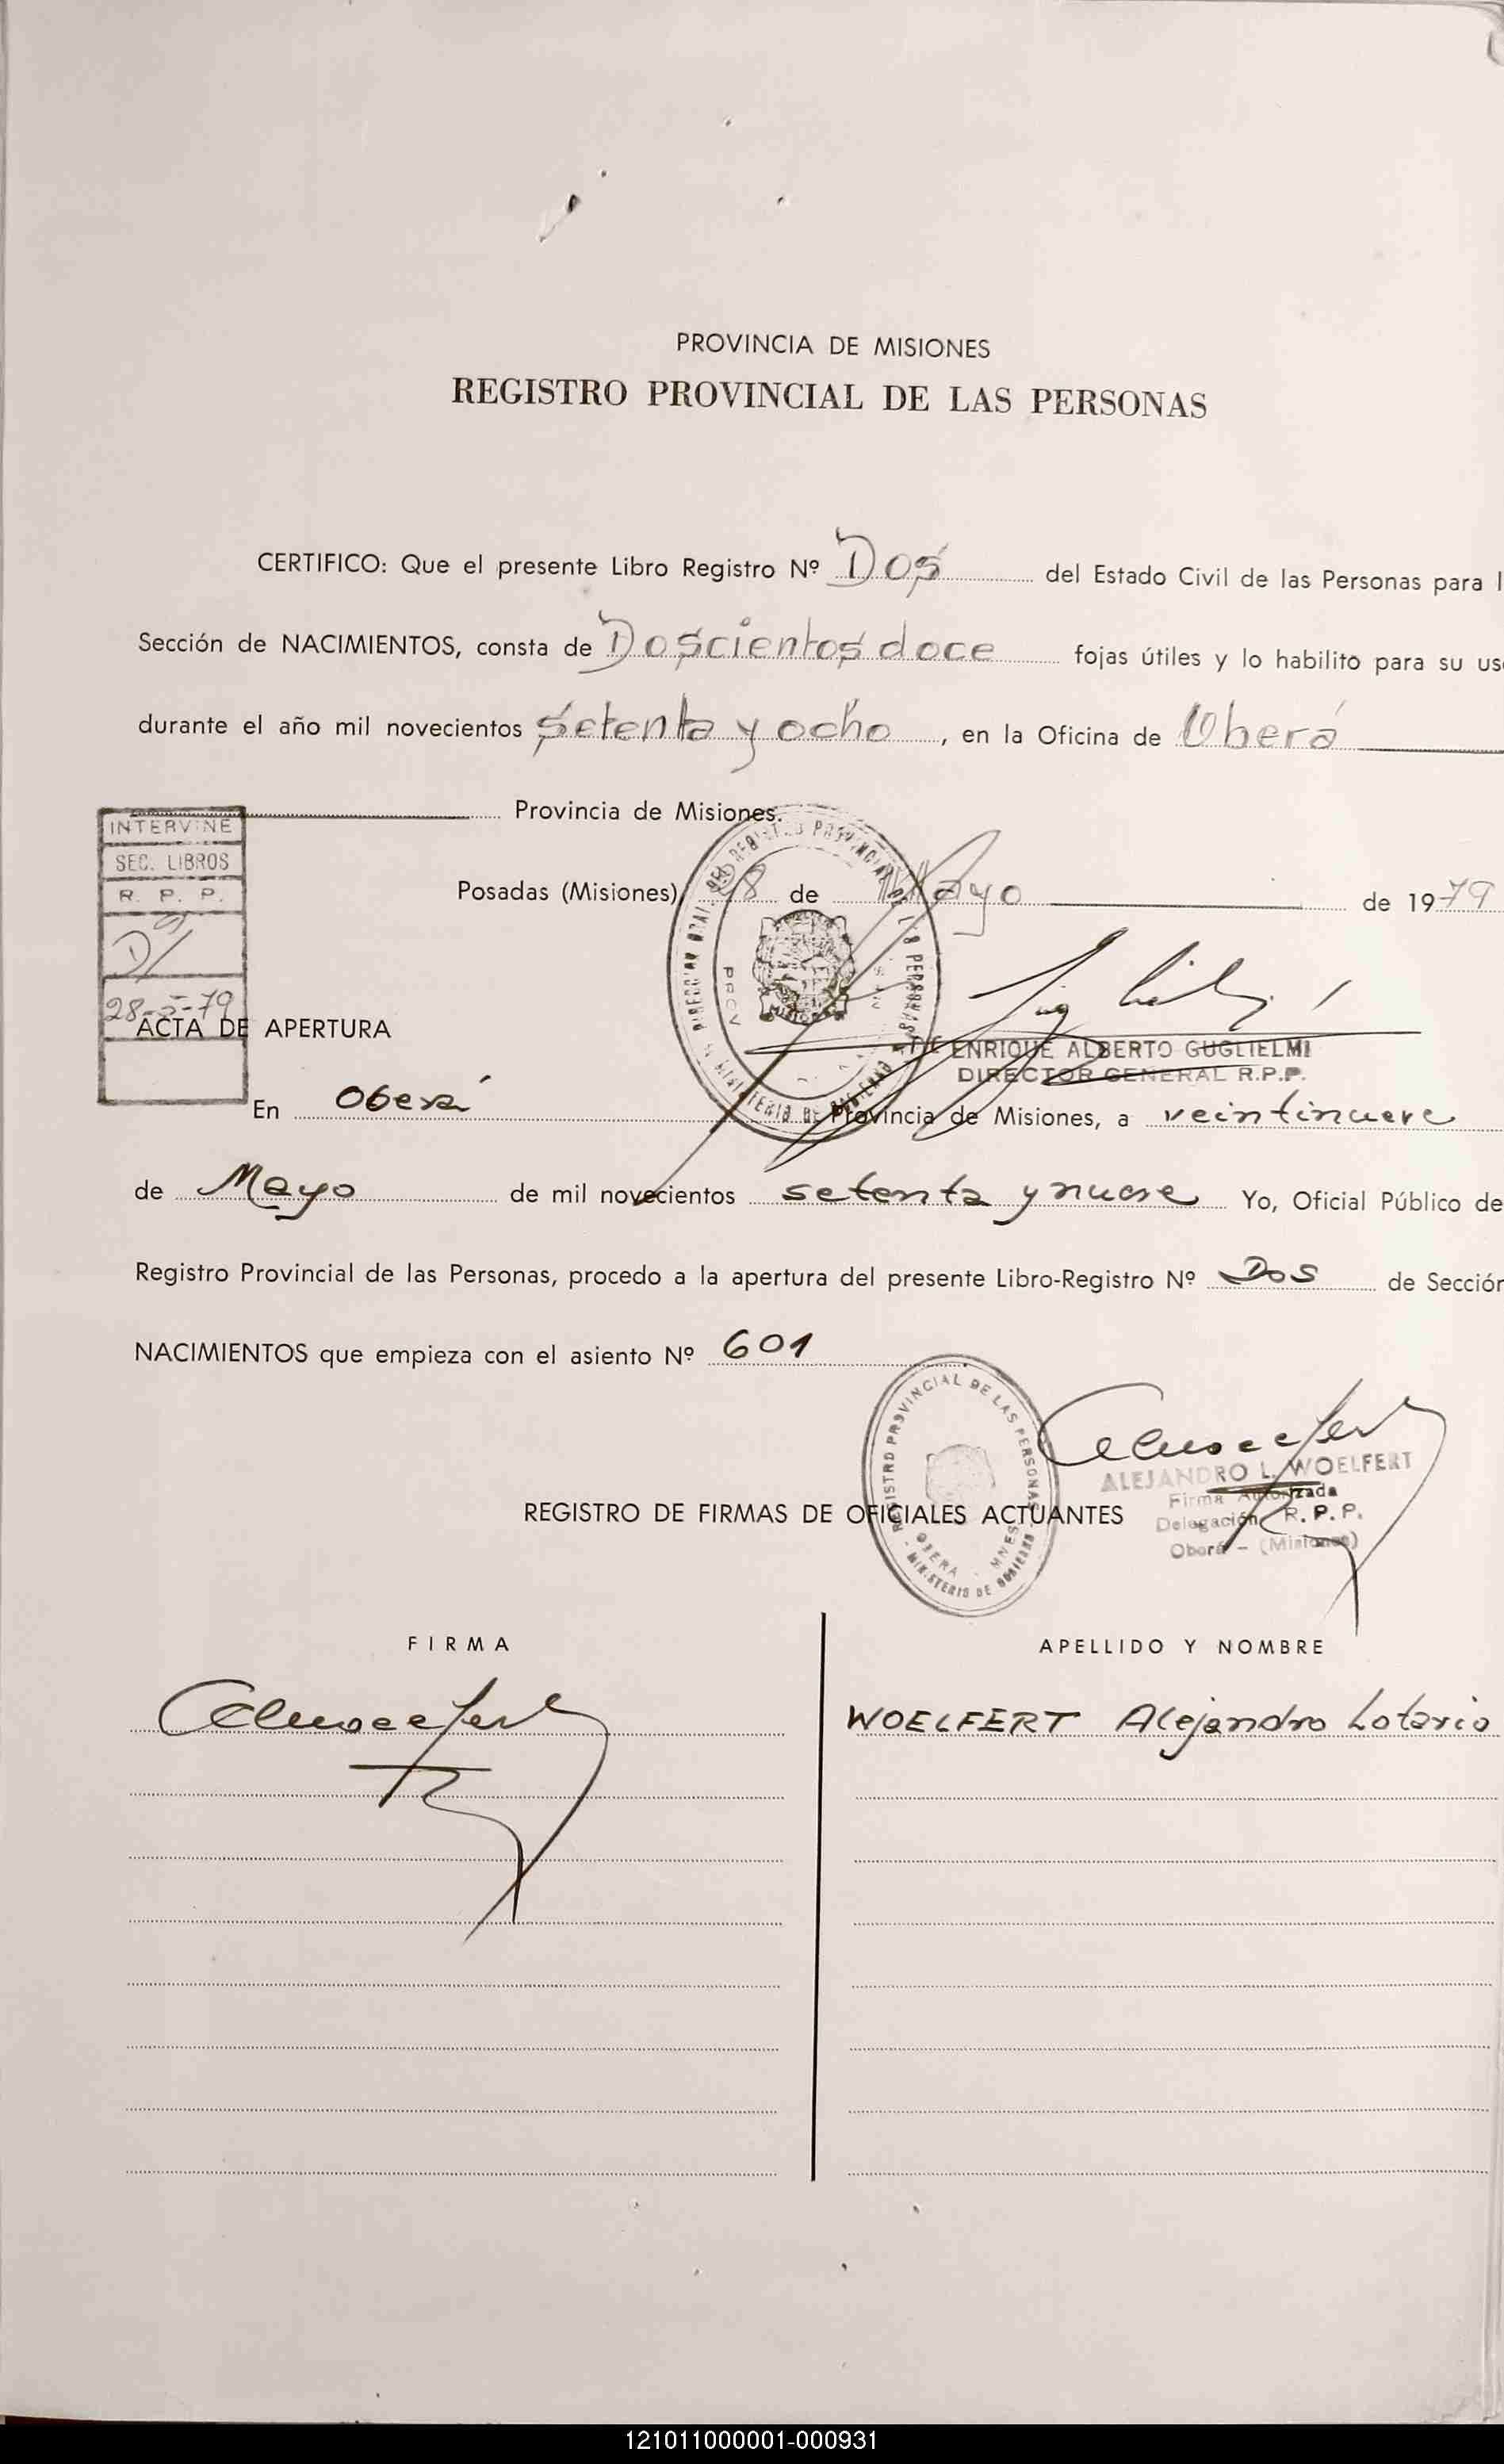 PROVINCIA DE MISIONES
REGISTRO PROVINCIAL DE LAS PERSONAS
CERTIFICO: Que el presente Libro Registro Nº Dos del Estado Civil de las Personas para l
Sección de NACIMIENTOS, consta de Doscientos doce fojas útiles y lo habilito para su us
durante el año mil novecientos setenta y ocho, en la Oficina de Oberá
Provincia de Misiones.
INTERVINE
SEC. LIBROS
R. P. P.
28-5-79
Posadas (Misiones) 28 de Mayo de 1979
ENRIQUE ALBERTO GUGLIELMI
DIRECTOR GENERAL R.P.P.
ACTA DE APERTURA
En Oberá Provincia de Misiones, a veintinueve
de Mayo de mil novecientos setenta y nueve Yo, Oficial Público de
Registro Provincial de las Personas, procedo a la apertura del presente Libro-Registro Nº Dos de Sección
NACIMIENTOS que empieza con el asiento Nº 601
REGISTRO PROVINCIAL DE LAS PERSONAS
OBERA - MNES
MINISTERIO DE GOBIERNO
ALEJANDRO L. WOELFERT
Firma Autorizada
Delegación R. P. P.
Oberá - (Misiones)
REGISTRO DE FIRMAS DE OFICIALES ACTUANTES
FIRMA
APELLIDO Y NOMBRE
WOELFERT Alejandro Lotario
121011000001-000931